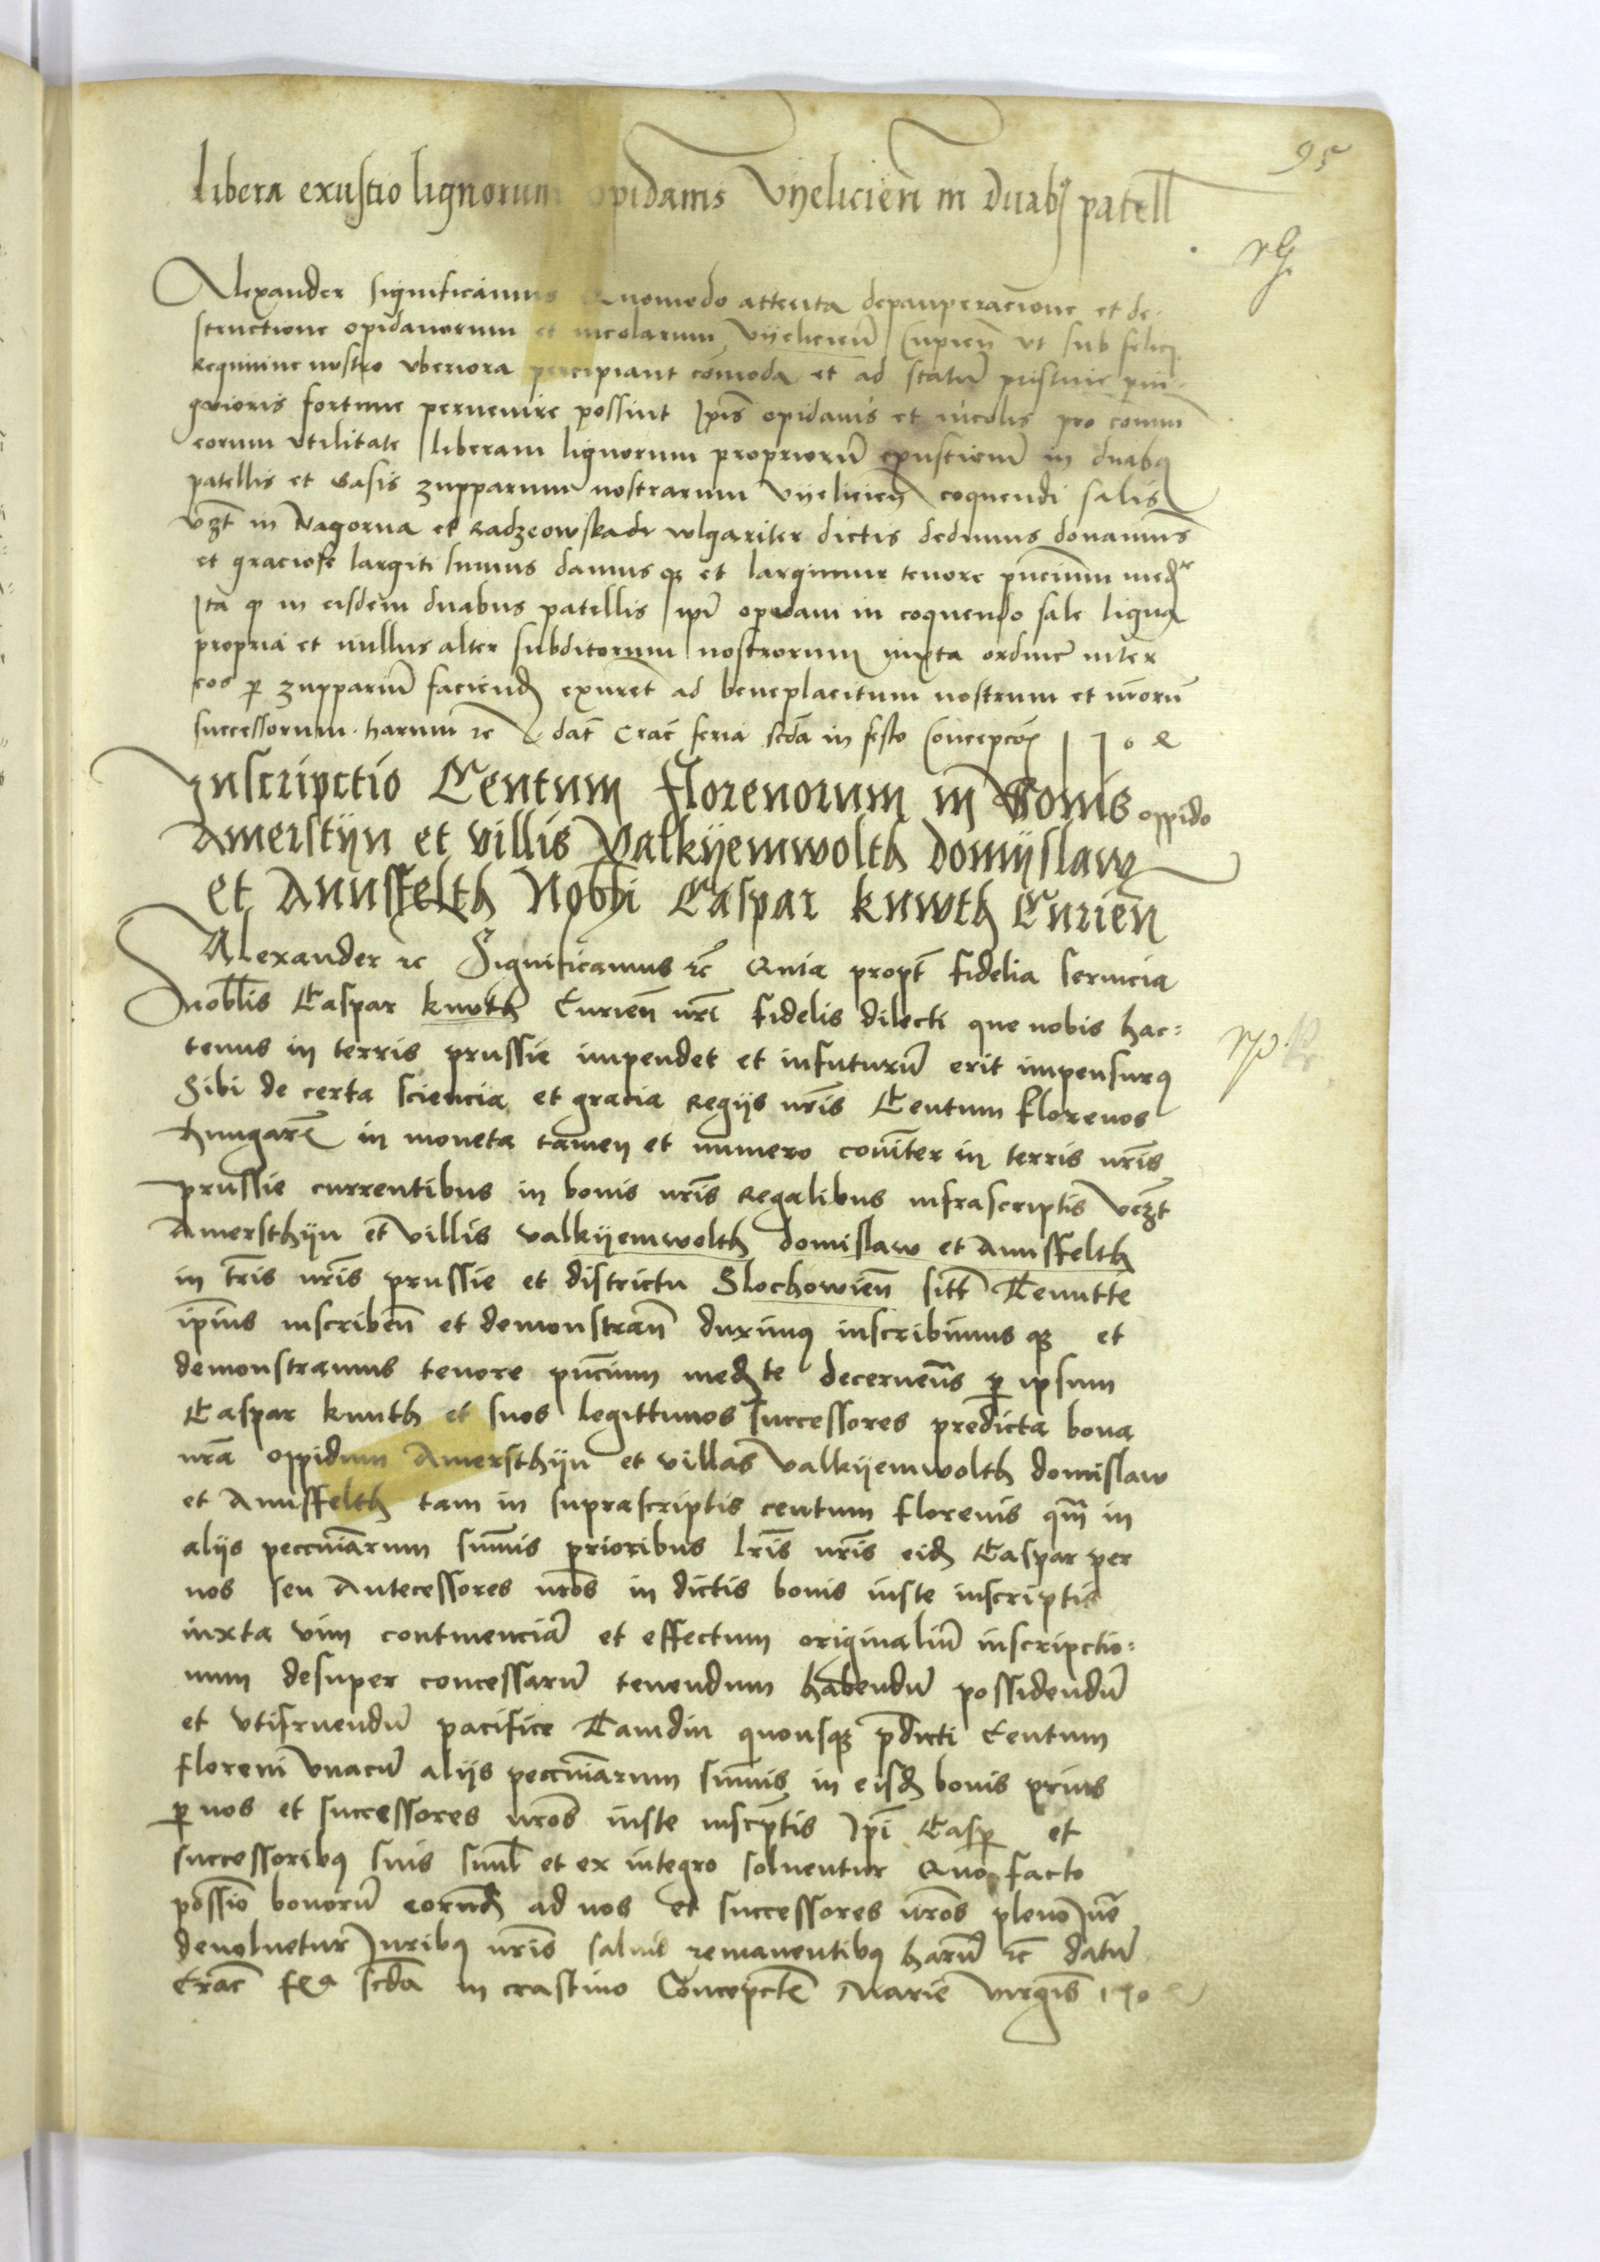 95
Libera exustio lignorum opidanis Vyelicień in duabꝫ patell
Alexander significamus Quomodo attenta depauperacione et de-
structione opidanorum et incolarum Vyelicień Cupień vt sub felici
Regimine nostro vberiora percipiant comoda et ad statū pristine pin-
gwioris fortune pervenire possint Ipīs opidanis et incolis pro comuni
eorum vtilitate liberam lignorum propriorū exustionē in duabꝫ
patellis et casis zupparum nostrarum Vyelicień coquendi salis
vꝫt in Nagorna et Radzeowska dr wlgariter dictis dedimus donavimus
et graciose largiti sumus damusqꝫ et largimur tenore pn̄cium med
Ita qꝫ in eisdem duabus patellis ipī opidani in coquendo sale ligna
propria et nullus alter subditorum nostrorum iuxta ordinē inter
eos ꝑ zupparium faciend exuret ad beneplacitum nostrum et nrorū
successorum. harum rc dat Crac feria scda in festo Concepcōis
Inscripctio Centum Florenorum in Bonis oppido
Amerstyn et villis Valkyemwolth domyslaw
et Annsffelth Nobli Caspar knwth Curień
Alexander rc Significamus rc Quia propt fidelia servicia
Nobilis Caspar knwth Curień nri fidelis dilecti que nobis hac=
tenus in terris prussie impendet et infuturū erit impensurꝫ
Sibi de certa sciencia et gracia Regijs nrīs Centum florenos
hungarē in moneta tamen et numero comiter in terris nrīs
prussie currentibus in bonis nrīs Regalibus infrascriptis vcꝫt
Amersthyn et villis valkyemwolth domislaw et Annsffelth
in tris nrīs prussie et districtu Slochowień sitt Tenutte
ipīus inscribeń et demonstrań duximꝫ inscribimus qꝫ et
demonstramus tenore pn̄cium med te decerneń ꝑ ipsum
Caspar knuth et suos legittimos successores predicta bona
nrā oppidum Amersthyn et villas valkyemwolth domislaw
et Annsffelth tam in suprascriptis centum florenis qm̄ in
alijs peccuniarum summis prioribus lrīs nrīs eid Caspar per
nos seu Antecessores nros in dictis bonis iuste inscriptis
iuxta vim continenciā et effectum originaliū inscripctio=
num desuper concessarū tenendum habendū possidendū
et vtifruendū pacifice Tamdiu quousqꝫ pdicti Centum
floreni vnacū alijs peccuniarum summis in eisd bonis prius
ꝑ nos et successores nros iuste inscptis Ipī Caspꝑ et
successoribꝫ suis simul et ex integro soluentur Quo facto
possio bonorū eorund ad nos et successores nros pleno Iure
devoluetur Iuribꝫ nrīs salvis remanentibꝫ harū rc datū
Crac fa scda in crastino Concepcte Marie virgis